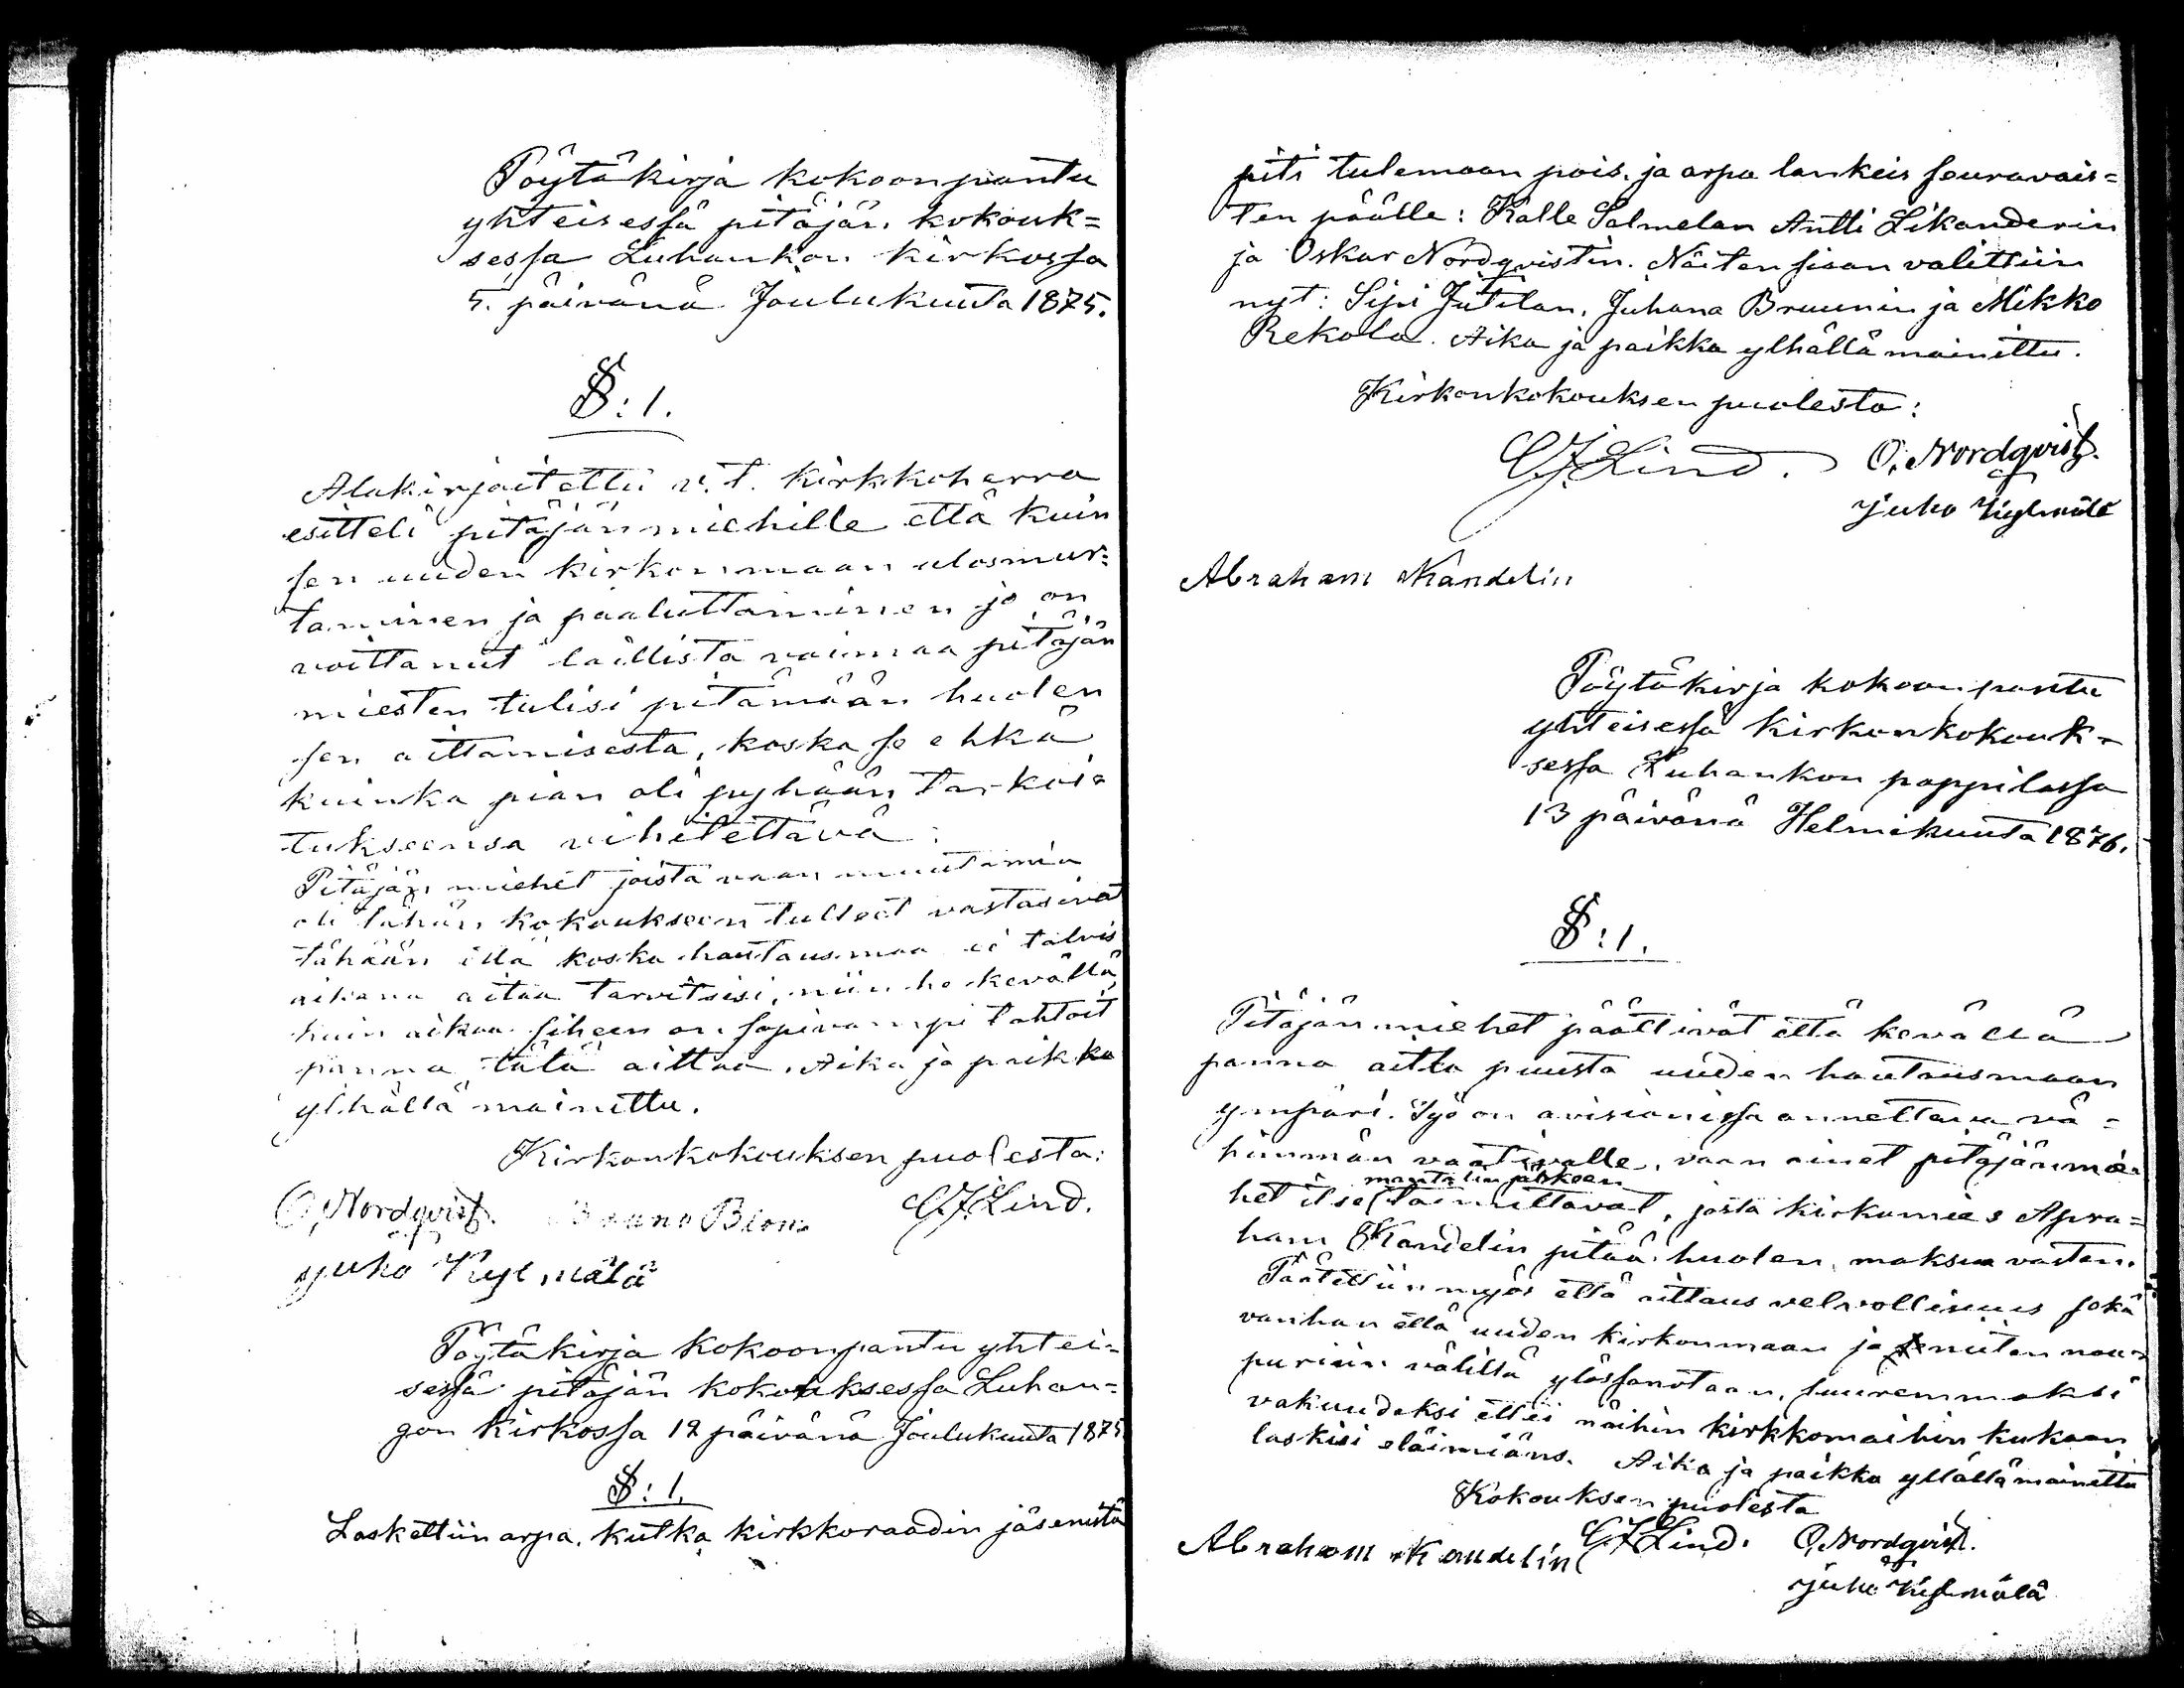 Pöytäkirja kokoonpantu
yhteisessä pitäjän kokouk=
sessa Luhankon kirkossa
5. päivänä Joulukuuta 1875.
§: 1.
Alakirjoitettu v. t. kirkkoherra
esitteli pitäjänmiehille että kuin
sen uuden kirkonmaan ulosmur=
taminen ja paaluttaminen jo on
voittanut laillista voimaa pitäjän
miesten tulisi pitämään huolen
sen aittamisesta, koska se ehkä
kuinka pian oli pyhään tarkoi=
tukseensa vihitettävä.
Pitäjän miehet joista vaan muutamia
oli tähän kokoukseen tulleet vastasivat
tähään että koska hautausmaa ei talvis
aikana aitaa tarvitsisi, niin he kevällä,
kuin aikaa siheen on sopivampi tahtoit
panna tätä aittaa. Aika ja paikka
ylhällä mainittu.
Kirkonkokouksen puolesta:
O. Nordqvist. Blom C. J. Lind.
Juho Kylmälä
Pöytäkirja kokoonpantu yhtei=
sessä pitäjän kokouksessa Luhan=
gon kirkossa 12 päivänä Joulukuuta 1875
§: 1.
Laskettiin arpa, kutka kirkkoraadin jäsenistä
piti tulemaan pois, ja arpa lankeis seuravais=
ten päälle: Kalle Salmelan Antti Likanderin
ja Oskar Nordqvistin. Näiten siaan valittiin
nyt: Sipi Jutilan, Juhana Bruunin ja Mikko
Rekola. Aika ja paikka ylhällä mainittu.
Kirkonkokouksen puolesta:
C. J. Lind. O. Nordqvist.
Juho Kylmälä
Abraham Kandelin
Pöytäkirja kokoonpantu
yhteisessä kirkonkokouk=
sessa Luhankon pappilassa
13 päivänä Helmikuuta 1876.
§: 1.
Pitäjänmiehet päättivät että kevällä
panna aitta puusta uuden hautausmaan
ympäri. Työ on avisionissa annettava vä=
himmän vaativalle, vaan ainet pitäjänmie=
manttalin jälkeen
het itse toimittavat, josta kirkomies Apra=
ham Kandelin pitää huolen maksua vasten.
Päätettiin myös että aittaus velvollisuus sekä
vanhan että uuden kirkonmaan ja niiten naa=
puriin välillä ylössanotaan, suuremmaksi
vakuudeksi ettei näihin kirkkomaihin kukaan
laskisi eläimiäns. Aika ja paikka yllällä mainittu
Kokouksen puolesta
Abraham Kandelin C. J. Lind. O. Nordqvist.
Juho Kylmälä